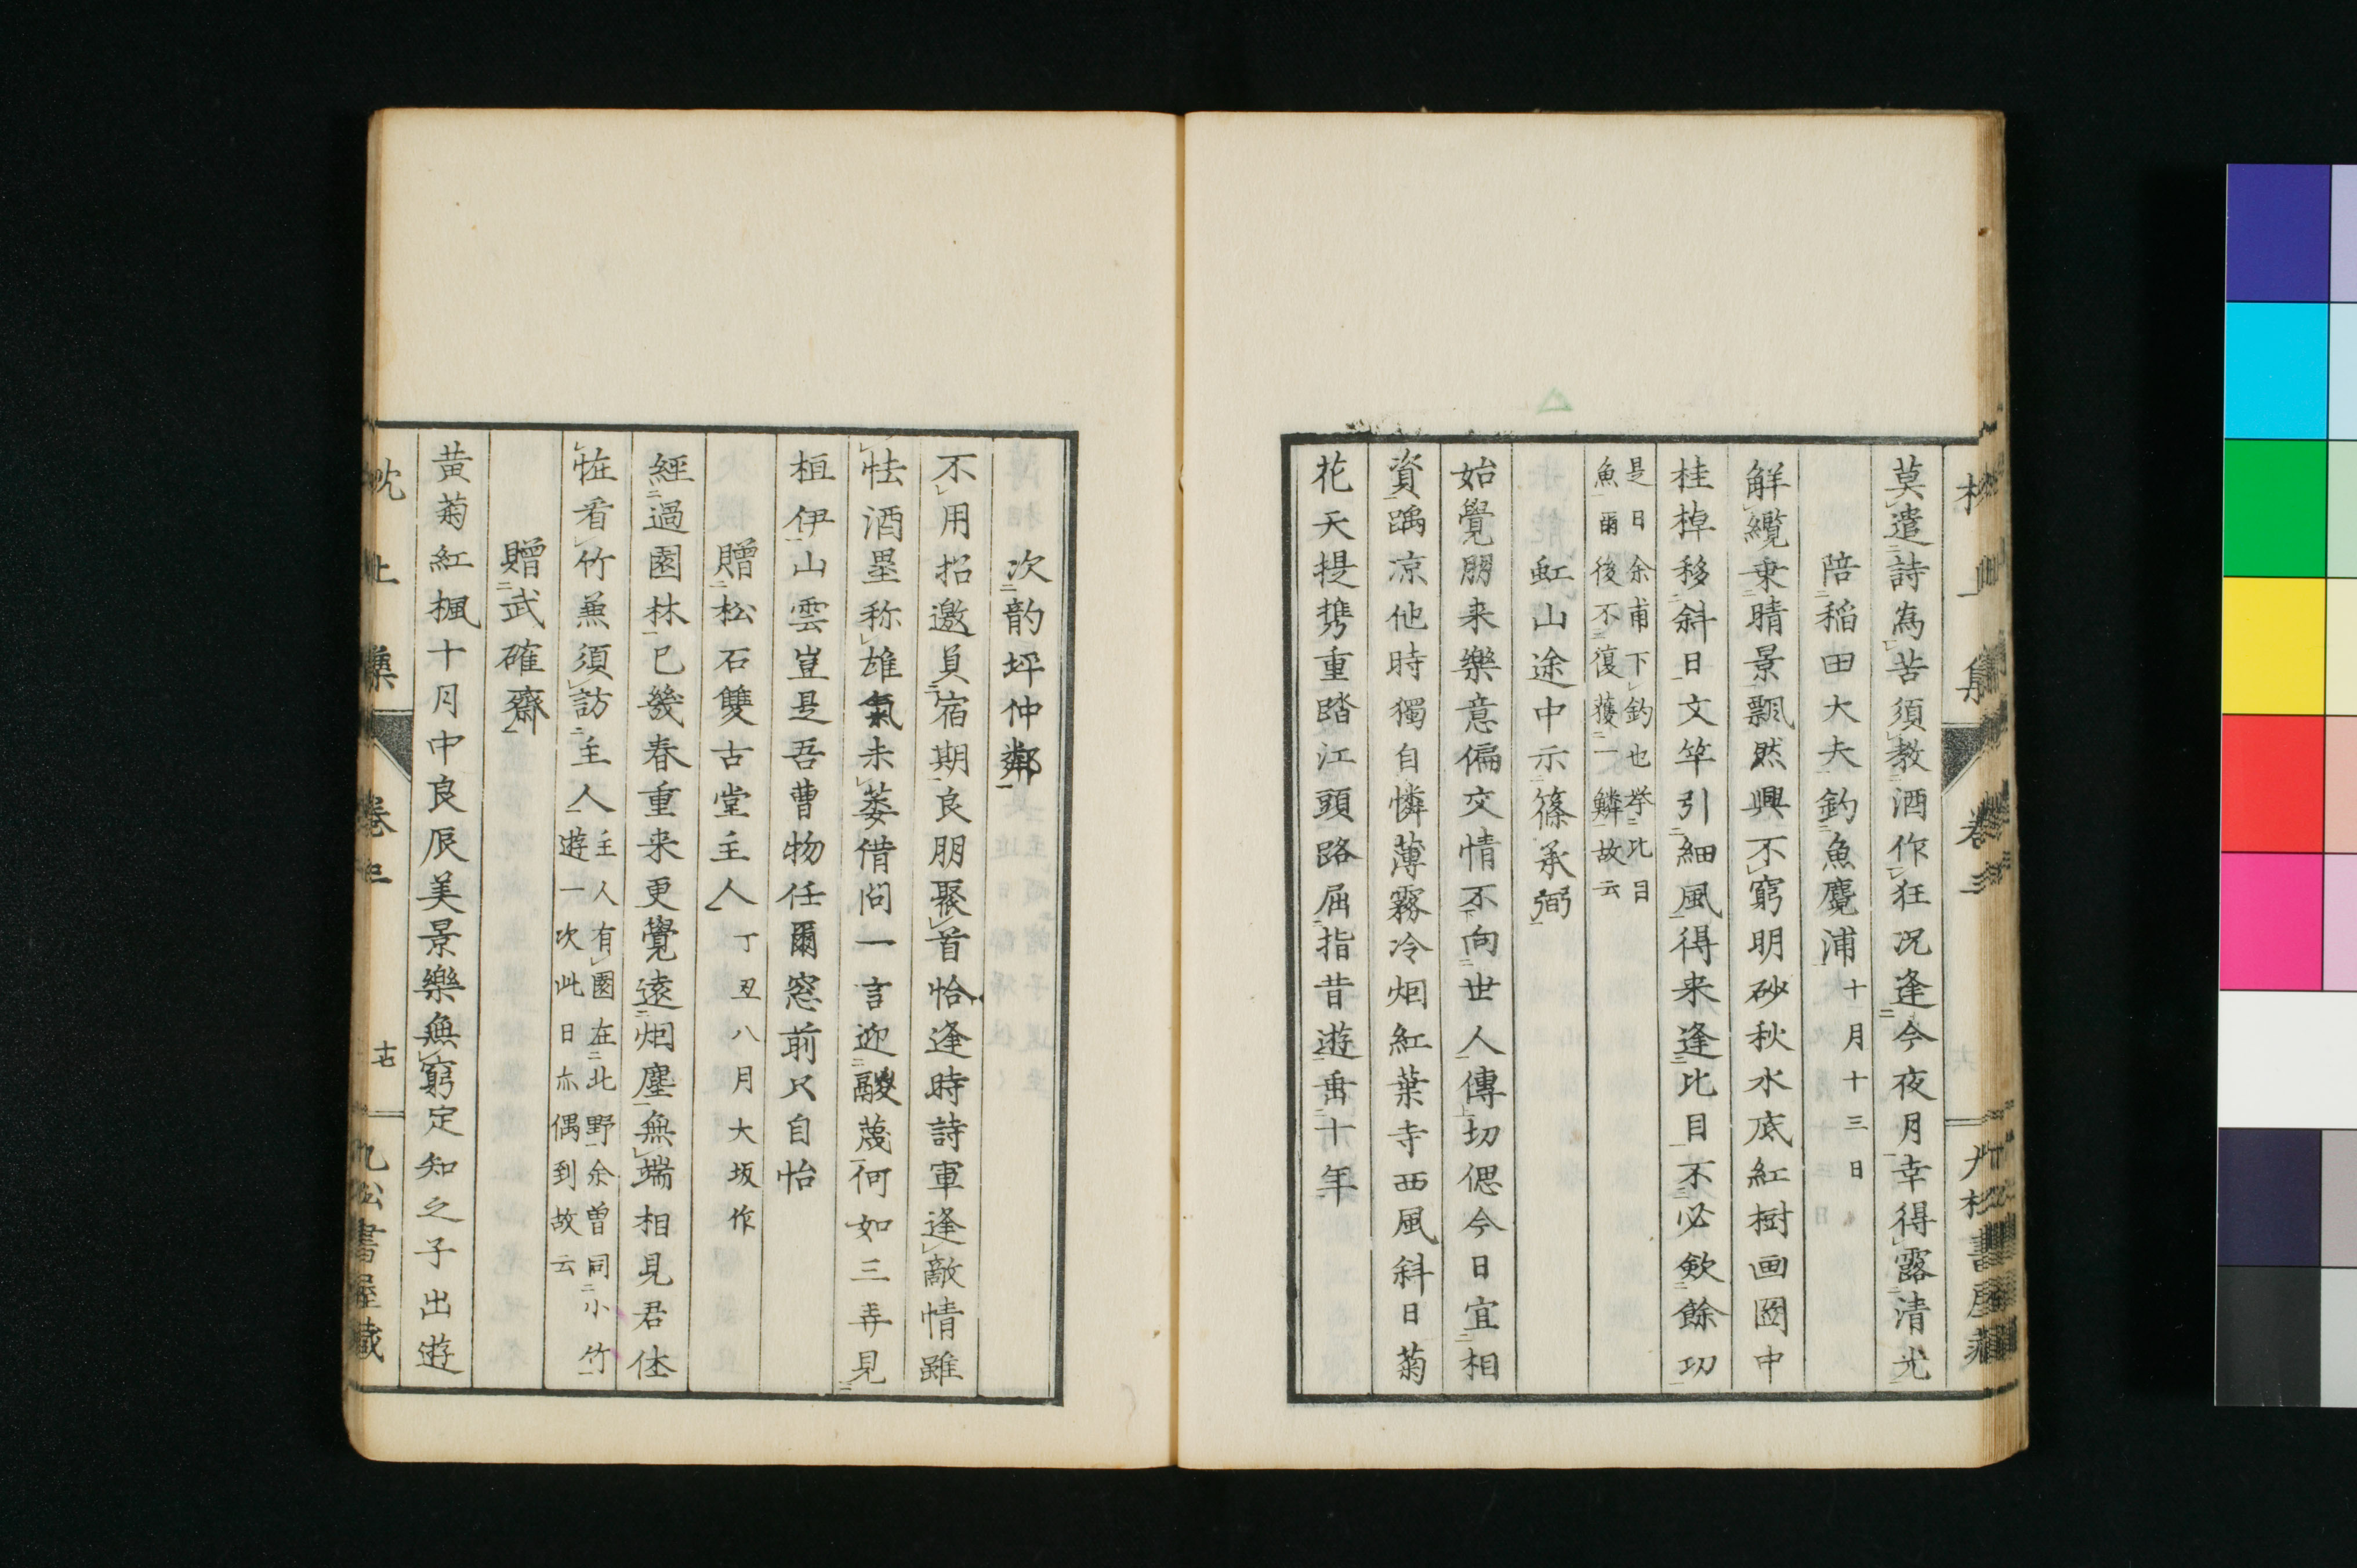 莫遣詩為苦須教酒作狂況逢今夜月幸得露清光
陪稻田大夫釣魚麑浦十月十三日
解纜乗晴景飄然興不窮明砂秋水底紅樹画圖中
桂棹移斜日文竿引細風得来逢比目不必歟餘功
是日余甫下釣也挙比目
魚爾後不復獲一鱗故云
虹山途中示篠承弼
始覺朋来樂意偏交情不向世人傳切偲今日宜相
資踽凉他時獨自憐薄霧冷烟紅葉寺西風斜日菊
花天提携重踏江頭路屈指昔遊垂十年
次韵坪仲鄰
不用招邀負宿期良朋聚首恰逢時詩軍逢敵情雖
怯酒壘称雄氣未萎借問一言迎鬷蔑何如三弄見
桓伊山雲豈是吾曹物任爾窓前只自怡
贈松石雙古堂主人丁丑八月大坂作
經過園林已幾春重来更覺遠烟塵無端相見君休
恠看竹兼須訪主人
主人有園在北野余曽同小竹
遊一次此日亦偶到故云
贈武確齋
黄菊紅楓十月中良辰美景樂無窮定知之子出遊
上集
卷三
十七
九松書屋藏